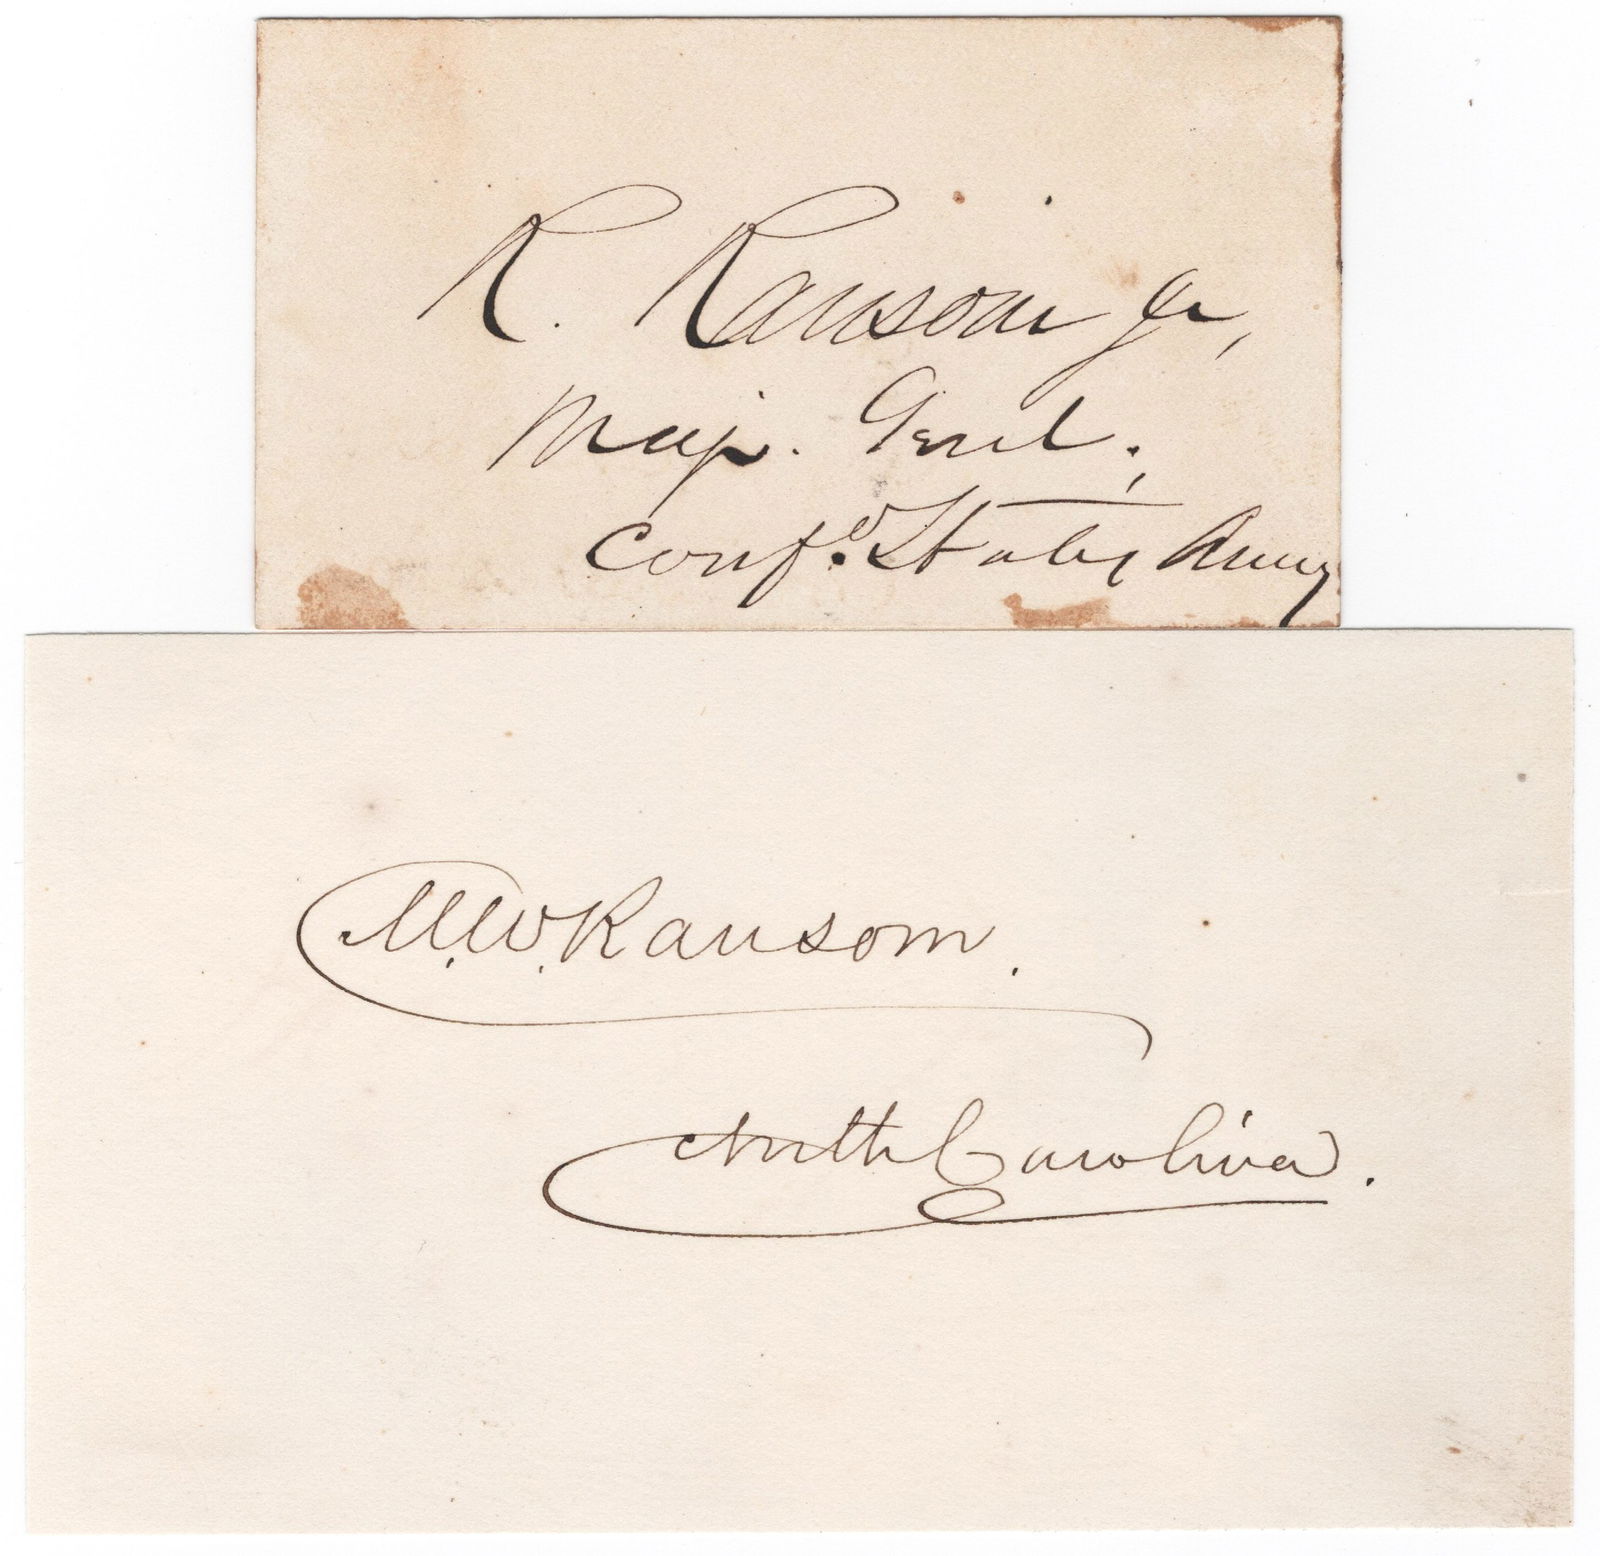 R. Ransom Jr,
Maj. Genl.,
Confd. States Army
M. W. Ransom.
North Carolina.